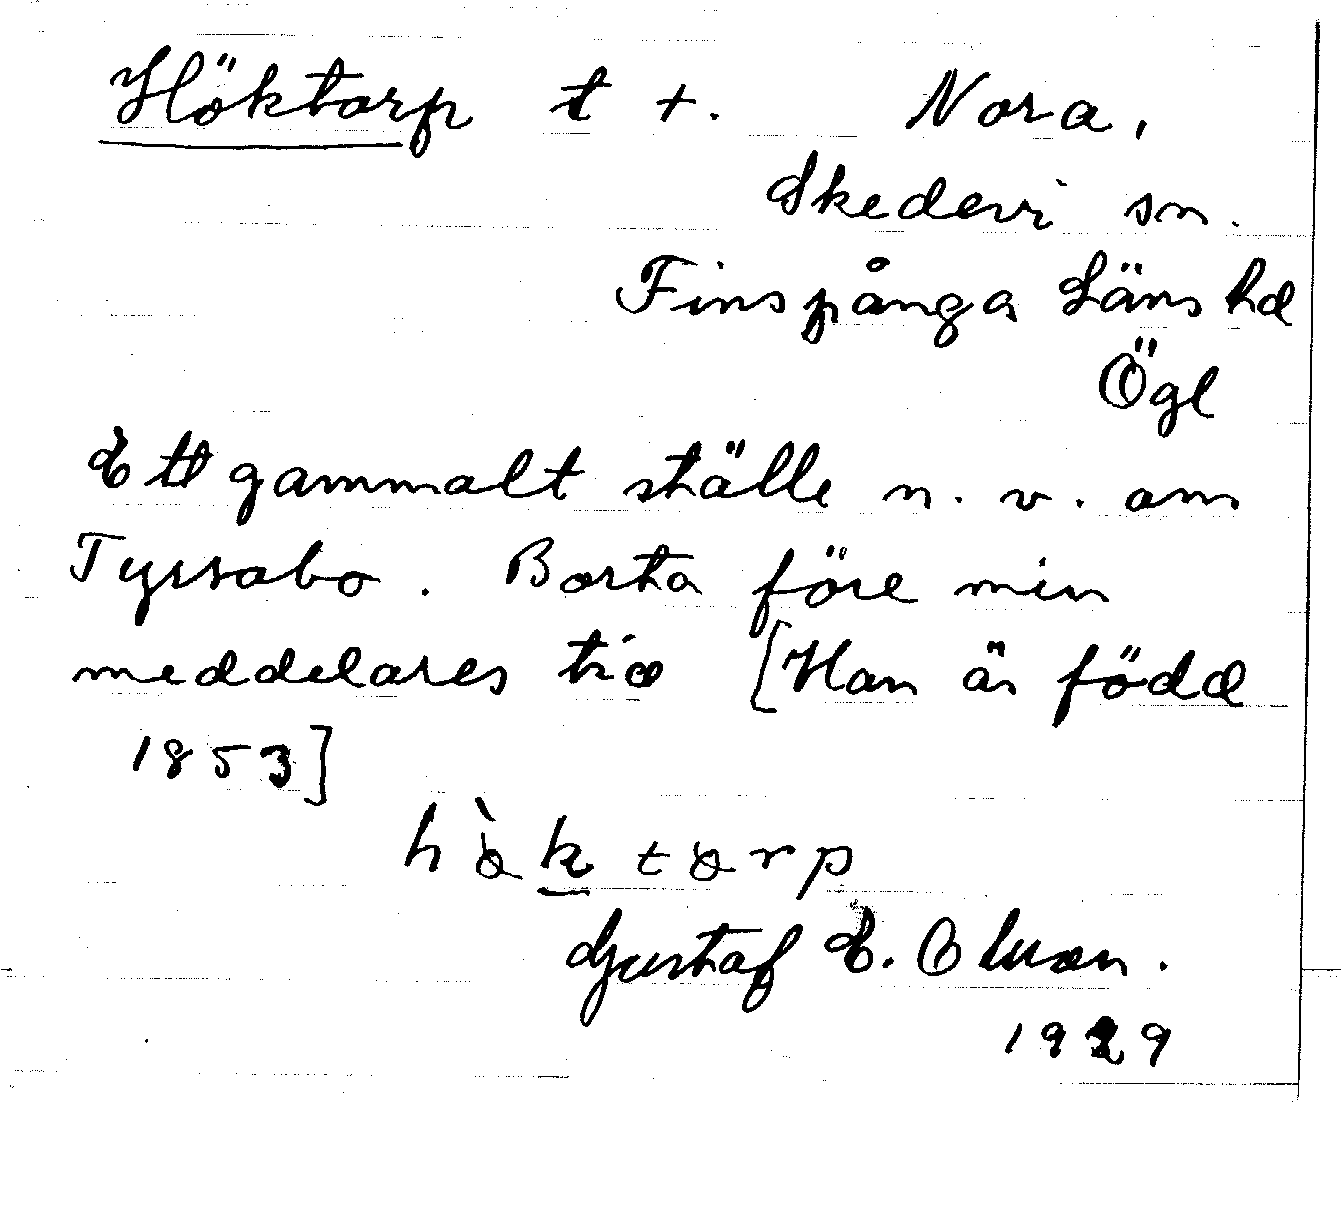 Höktorp t +. Nora,
Skedevi sn.
Finspånga Läns hd
Ögl
Ett gammalt ställe n. v. om
Tyssabo. Borta före min
meddelares tid [Han är född
1853]
hὸk torp
Gustaf E.
1929